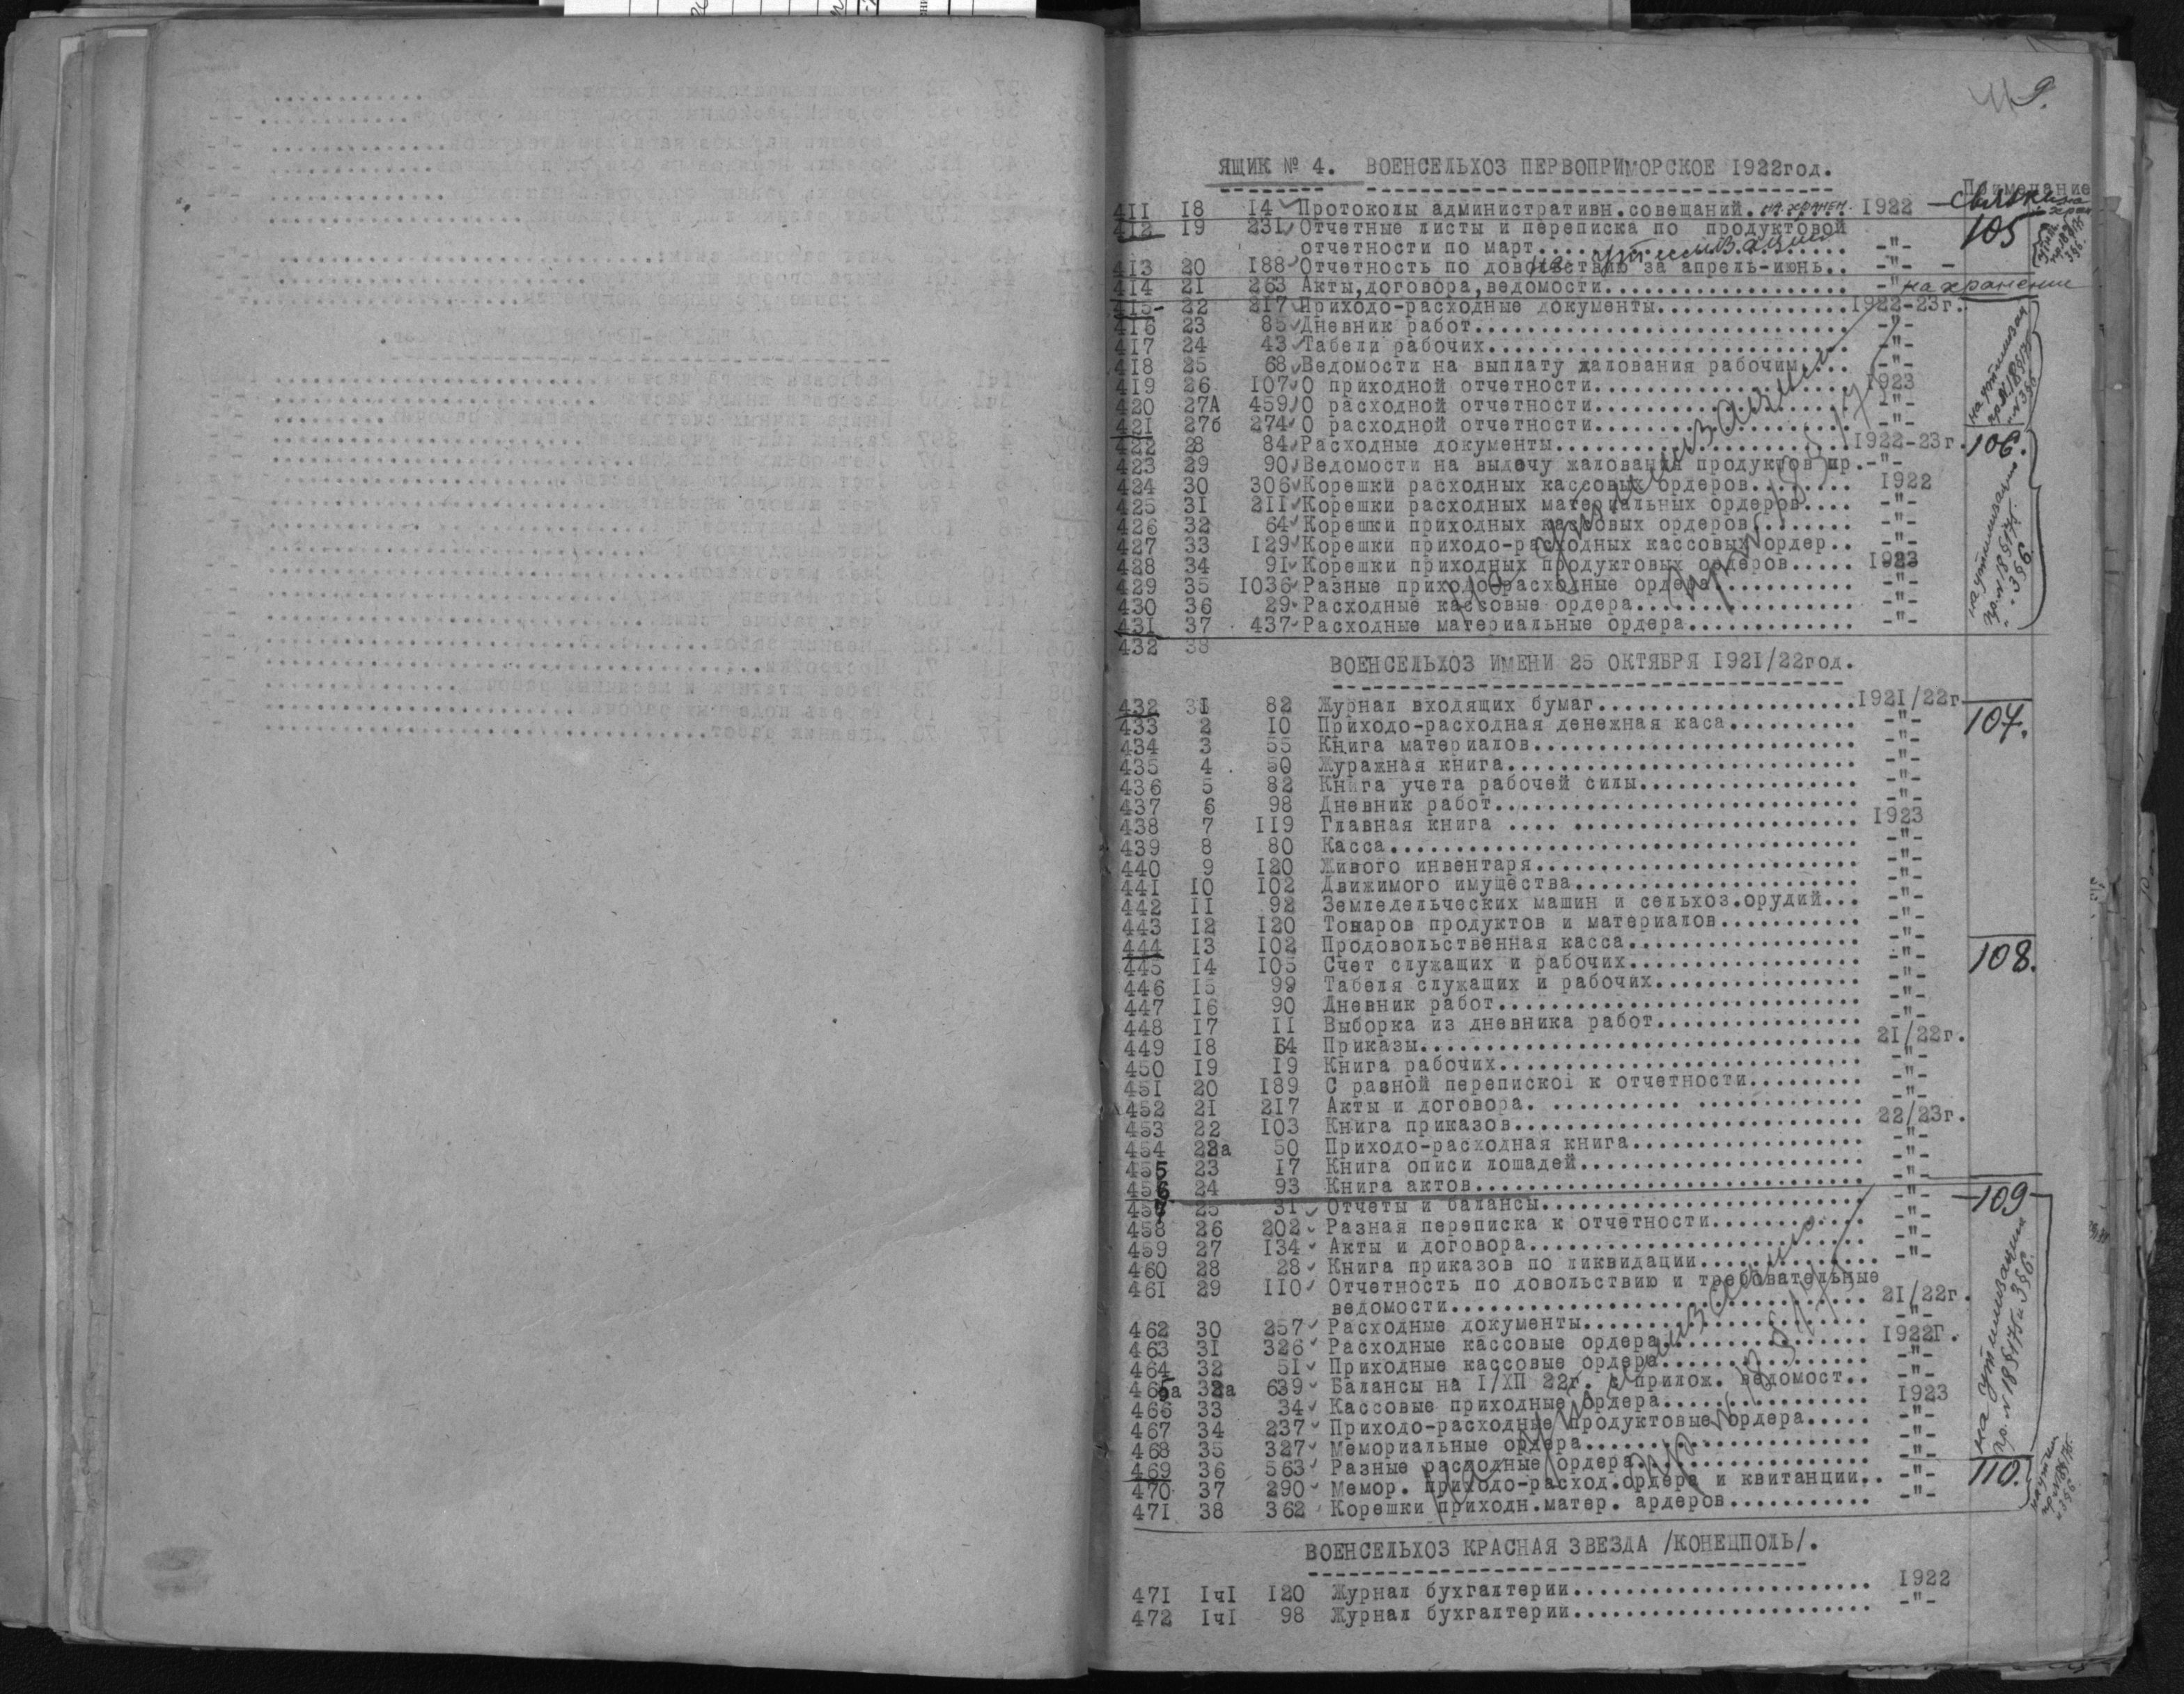 9.
ЯЩИК № 4. ВОЕНСЕЛЬХОЗ ПЕРВОПРИМОРСКОЕ 1922год.
Примечание
411 18 14 Протоколы административн.совещаний. на хранен. 1922 Связка
412 19 231 Отчетные листы и переписка по продуктовой 105
отчетности по март........ -"-
413 20 188 Отчетность по довольствию за апрель-июнь.. -"-
414 21 263 Акты,договора,ведомости................... -"- на хранение
415 22 217 Приходо-расходные документы...............1922-23г.
416 23 85 Дневник работ............................. -"-
417 24 43 Табели рабочих............................ -"-
418 25 68 Ведомости на выплату жалования рабочим.... -"-
419 26 107 О приходной отчетности.................... 1923
420 27А 459 О расходной отчетности.................... -"-
421 27б 274 О расходной отчетности.................... -"-
422 28 84 Расходные документы.......................1922-23г. 106.
423 29 90 Ведомости на выдачу жалования продуктов пр.-"-
424 30 306 Корешки расходных кассовых ордеров........ 1922
425 31 211 Корешки расходных материальных ордеров.... -"-
426 32 64 Корешки приходных кассовых ордеров........ -"-
427 33 129 Корешки приходо-расходных кассовых ордер.. -"-
428 34 91 Корешки приходных продуктовых ордеров..... 1923
429 35 1036 Разные приходорасходные ордера........... -"-
430 36 29 Расходные кассовые ордера................. -"-
431 37 437 Расходные материальные ордера............. -"-
432 38
на утилизацию
пр. № 185175.
" 356.
ВОЕНСЕЛЬХОЗ ИМЕНИ 25 ОКТЯБРЯ 1921/22год.
432 31 82 Журнал входящих бумаг....................1921/22г.
433 2 10 Приходо-расходная денежная каса.......... -"- 107.
434 3 55 Книга материалов......................... -"-
435 4 50 Журажная книга........................... -"-
436 5 82 Книга учета рабочей силы................. -"-
437 6 98 Дневник работ............................ -"-
438 7 119 Главная книга .... ...................... 1923
439 8 80 Касса.................................... -"-
440 9 120 Живого инвентаря......................... -"-
441 10 102 Движимого имущества...................... -"-
442 11 92 Земледельческих машин и сельхоз.орудий... -"-
443 12 120 Товаров продуктов и материалов........... -"-
444 13 102 Продовольственная касса.................. -"-
445 14 105 Счет служащих и рабочих.................. -"- 108.
446 15 99 Табеля служащих и рабочих................ -"-
447 16 90 Дневник работ............................ -"-
448 17 11 Выборка из дневника работ................ -"-
449 18 64 Приказы.................................. 21/22г.
450 19 19 Книга рабочих............................ -"-
451 20 189 С разной перепиской к отчетности......... -"-
452 21 217 Акты и договора. .......... ............. -"-
453 22 103 Книга приказов........................... 22/23г.
454 22а 50 Приходо-расходная книга.................. -"-
455 23 17 Книга описи лошадей...................... -"-
456 24 93 Книга актов.............................. -"-
457 25 31 Отчеты и балансы......................... -"- 109
458 26 202 Разная переписка к отчетности............ -"-
459 27 134 Акты и договора.......................... -"-
460 28 28 Книга приказов по ликвидации............. -"-
461 29 110 Отчетность по довольствию и требовательные
ведомости................................ 21/22г.
462 30 257 Расходные документы...................... -"-
463 31 326 Расходные кассовые ордера................ 1922Г.
464 32 51 Приходные кассовые ордера................ -"-
465а 32а 639 Балансы на 1/XII 22г. с прилож. ведомост.. -"-
466 33 34 Кассовые приходные ордера................ 1923
467 34 237 Приходо-расходные продуктовые ордера..... -"-
468 35 327 Мемориальные ордера...................... -"-
469 36 563 Разные расходные ордера.................. -"-
470 37 290 Мемор. приходо-расход.ордера и квитанции.. -"- 110.
471 38 362 Корешки приходн.матер. ардеров........... -"-
на утилизацию
пр. № 185175 и 356.
ВОЕНСЕЛЬХОЗ КРАСНАЯ ЗВЕЗДА /КОНЕЦПОЛЬ/.
471 1ч1 120 Журнал бухгалтерии....................... 1922
472 1ч1 98 Журнал бухгалтерии....................... -"-